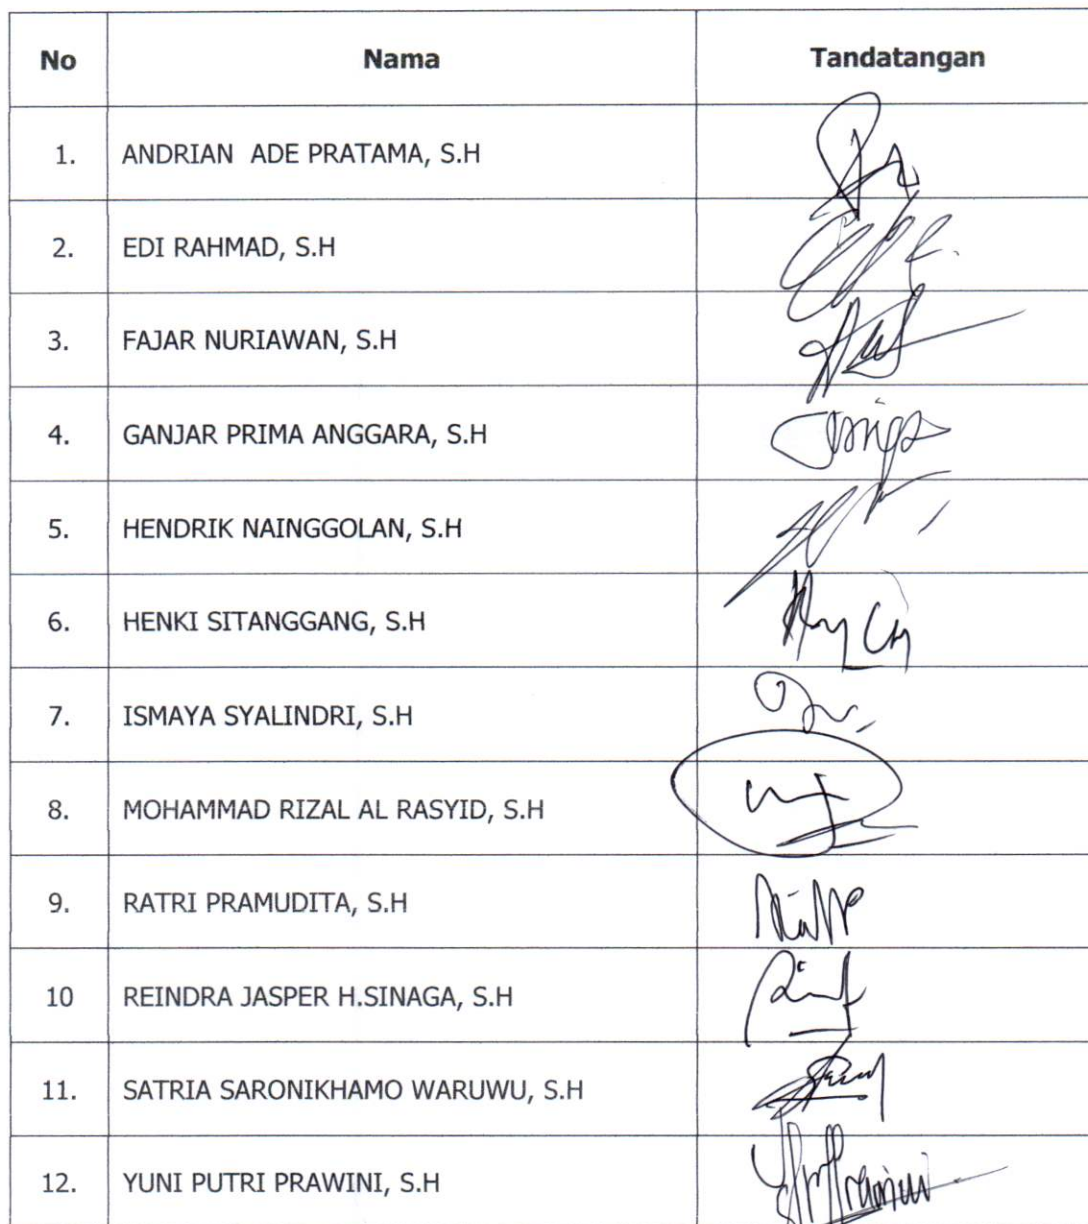 No Nama Tandatangan
1. ANDRIAN ADE PRATAMA, S.H
2. EDI RAHMAD, S.H
3. FAJAR NURIAWAN, S.H
4. GANJAR PRIMA ANGGARA, S.H
5. HENDRIK NAINGGOLAN, S.H
6. HENKI SITANGGANG, S.H
7. ISMAYA SYALINDRI, S.H
8. MOHAMMAD RIZAL AL RASYID, S.H
9. RATRI PRAMUDITA, S.H
10 REINDRA JASPER H.SINAGA, S.H
11. SATRIA SARONIKHAMO WARUWU, S.H
12. YUNI PUTRI PRAWINI, S.H